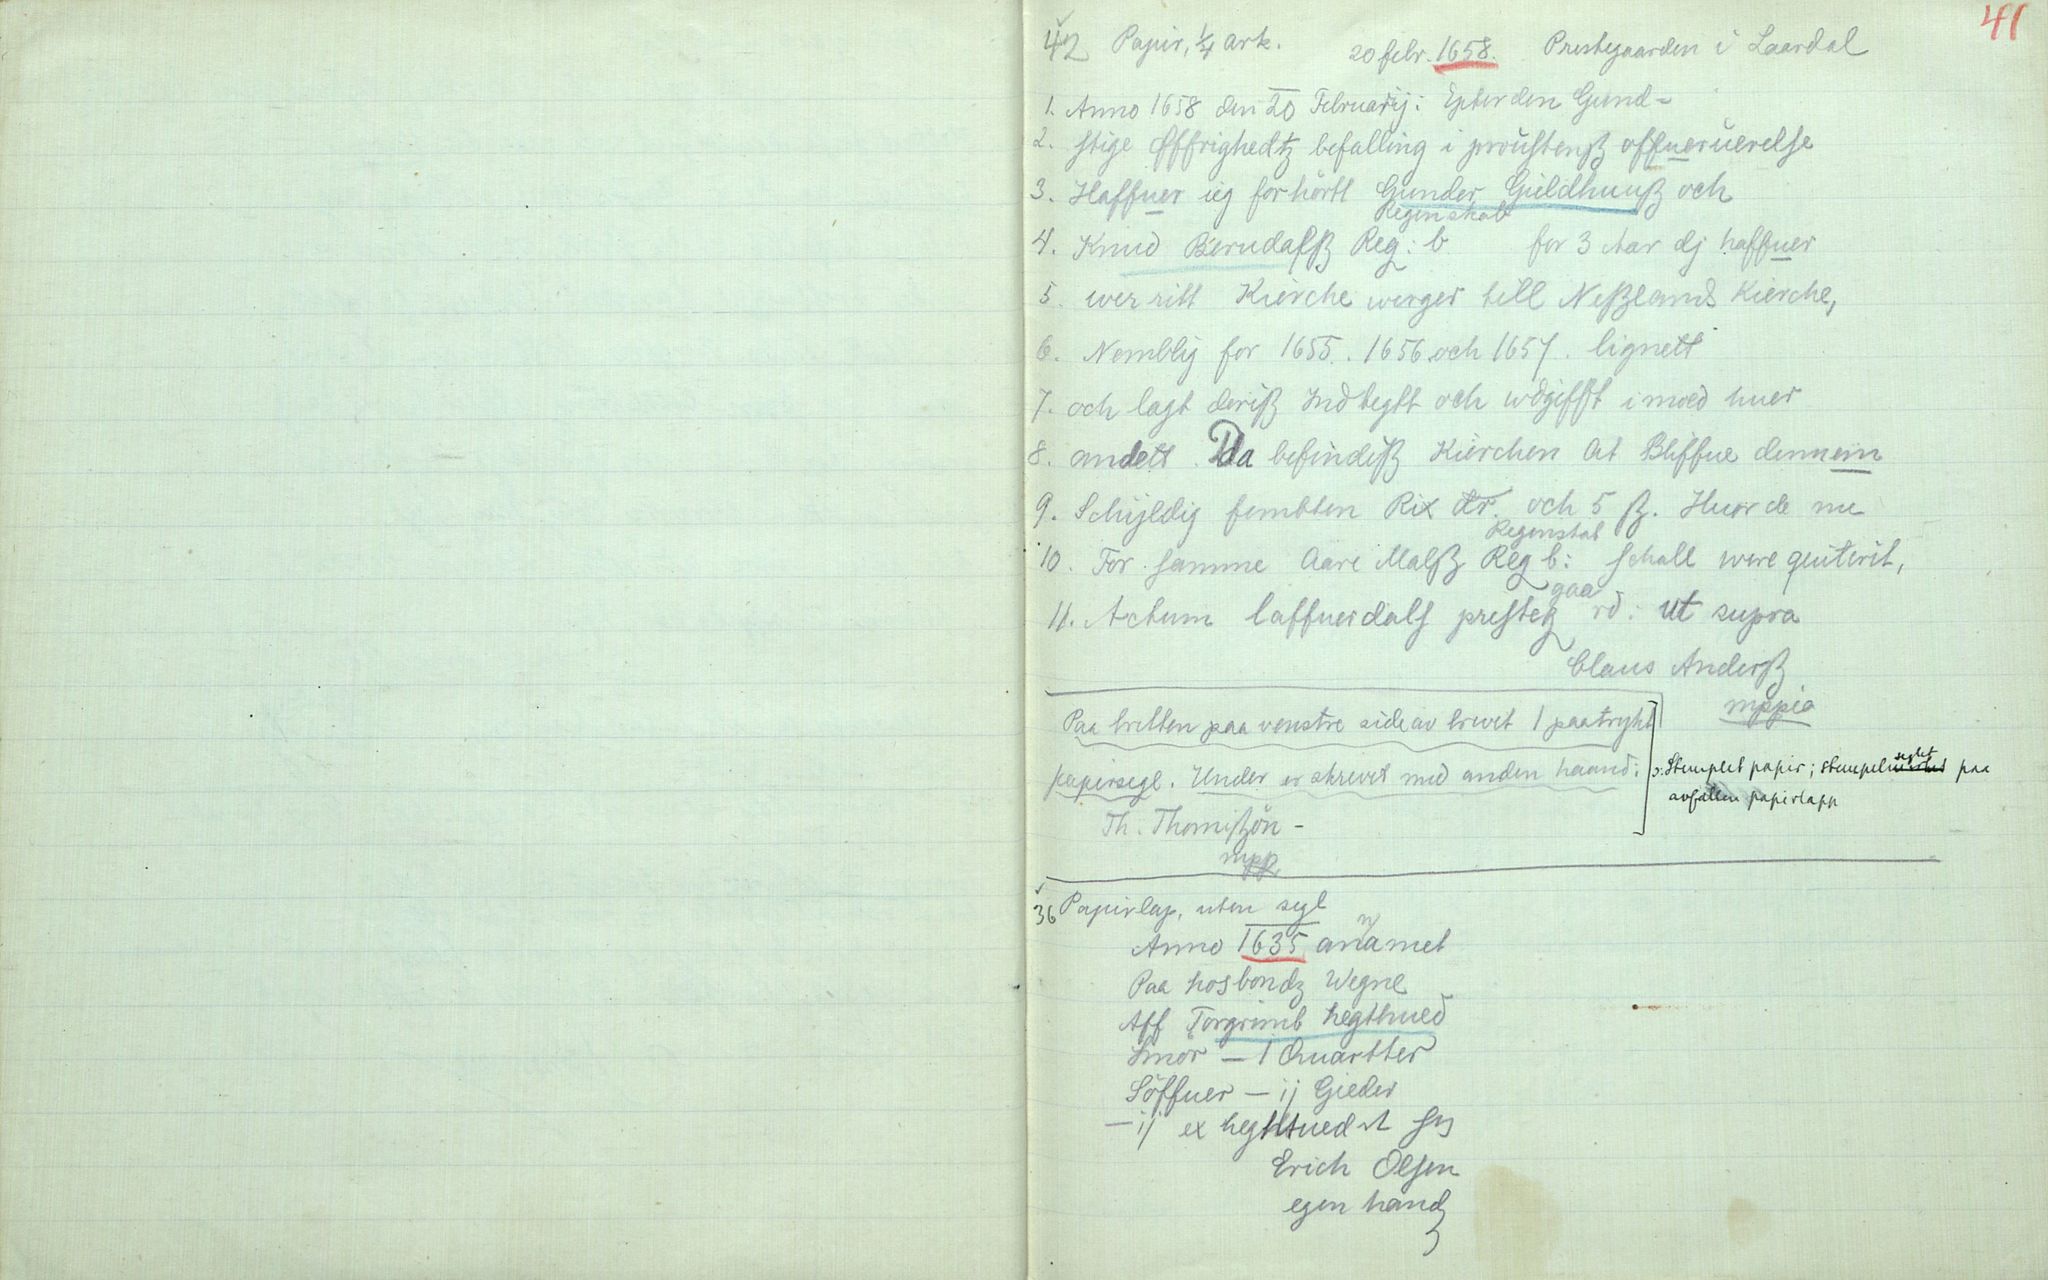 41
42 Papir, 1/4 ark. 20 febr. 1658. Prestegaarden i Laardal
1. Anno 1658 den 20 Februarij: Epter den Gund-
2. stige Øffrighedtz befalling i proustenß offueruerelse
3. Haffuer ieg forhörtt Gunder Guldhuuß och
Regenskab
4. Knud Berudalß Reg: b for 3 Aar dj haffuer
5. werritt Kierche werger till Neßlands Kierche,
6. Nemblig for 1655. 1656 och 1657. lignett
7. och lagt deriß Indtegtt och wdgifft imoed huer
8. andett. Da befindeß Kierchen At Bliffue dennem
9. Schyldig fembten Rix dr. och 5 ß. Huor de nu
Regenskab
10. For samme Aare Malß Reg b: schall were quiterit,
gaa
11. Actum laffuerdals presteg rd: ut supra
Claus Anderß
mppia
Paa bretten paa venstre side av brevet 1 paatrykt
papirsegl. Under er skrevet med anden haand:
ɔ: Stemplet papir; stempelseglet paa
avfallen papirlapp
Th. Thomißön -
mpp
36 Papirlap, uten segl
n
Anno 1635 anamet
Paa hosbondz Wegne
Aff Torgrimb hegthued
Smör — 1 Quartter
Söffuer — ij Gieder
— ij ex hegthued
Erich Olsen
egen handz